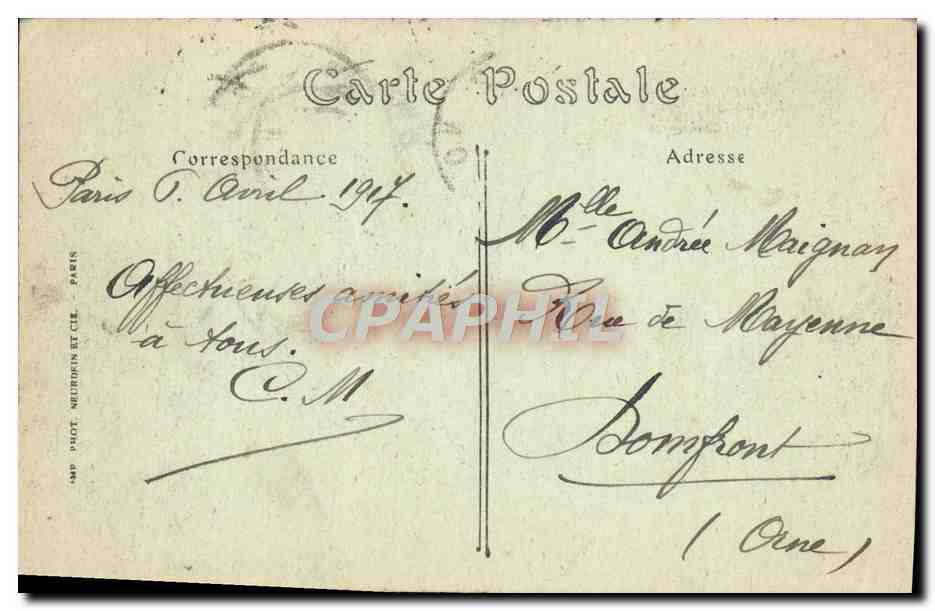 Carte Postale
Correspondance
Paris 6. Avril 1917.
Affectueuses amitiés
à tous.
C. M
Adresse
Mlle Andrée Maignan
Rue de Mayenne
Domfront
(Orne)
IMP. PHOT. NEURDEIN ET CIE. - PARIS
CPAPHIL